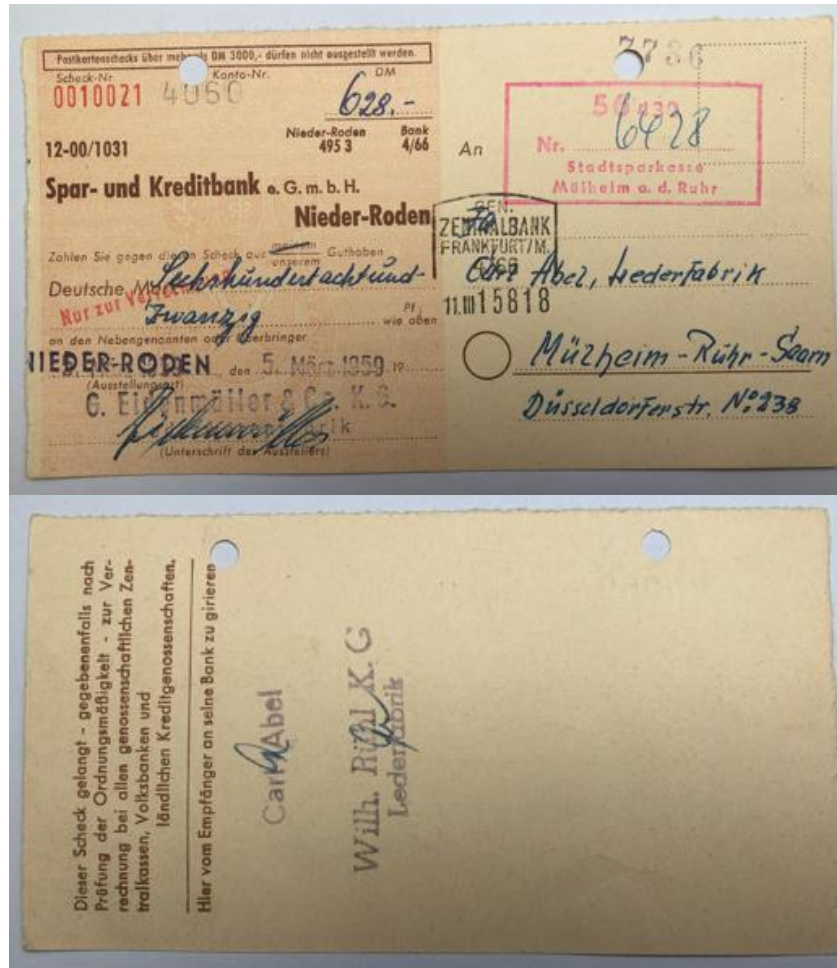 Postkartenschecks über mehr als DM 3000,- dürfen nicht ausgestellt werden.
Scheck-Nr. Konto-Nr. DM
0010021 4060 628.-
Nieder-Roden Bank
12-00/1031 495 3 4/66
Spar- und Kreditbank e. G. m. b. H.
Nieder-Roden
Zahlen Sie gegen diesen Scheck aus meinem unserem Guthaben
Deutsche Mark Sechshundertachtund-
Nur zur Verrechnung
zwanzig Pf. wie oben
an den Nebengenannten oder Überbringer
NIEDER-RODEN, den 5. März 1959 19
(Ausstellungsort)
G. Eisenmüller & Co. K. G.
(Unterschrift des Ausstellers)
7736
An
Nr. 6428
Stadtsparkasse
Mülheim a. d. Ruhr
GEN.
ZENTRALBANK
FRANKFURT/M.
11.III 15818
Fa
Carl Abel, Lederfabrik
Mülheim-Ruhr-Saarn
Düsseldorferstr. No 238
Dieser Scheck gelangt - gegebenenfalls nach
Prüfung der Ordnungsmäßigkeit - zur Ver-
rechnung bei allen genossenschaftlichen Zen-
tralkassen, Volksbanken und
ländlichen Kreditgenossenschaften.
Hier vom Empfänger an seine Bank zu girieren
Carl Abel
Wilh. K. G
Lederfabrik